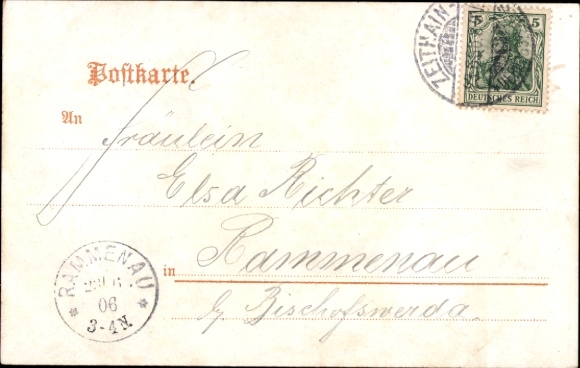 ZEITHAIN
5 5
DEUTSCHES REICH
Postkarte.
An
Fräulein
Elsa Richter
in Rammenau
b/ Bischofswerda.
RAMMENAU
06
3-4N